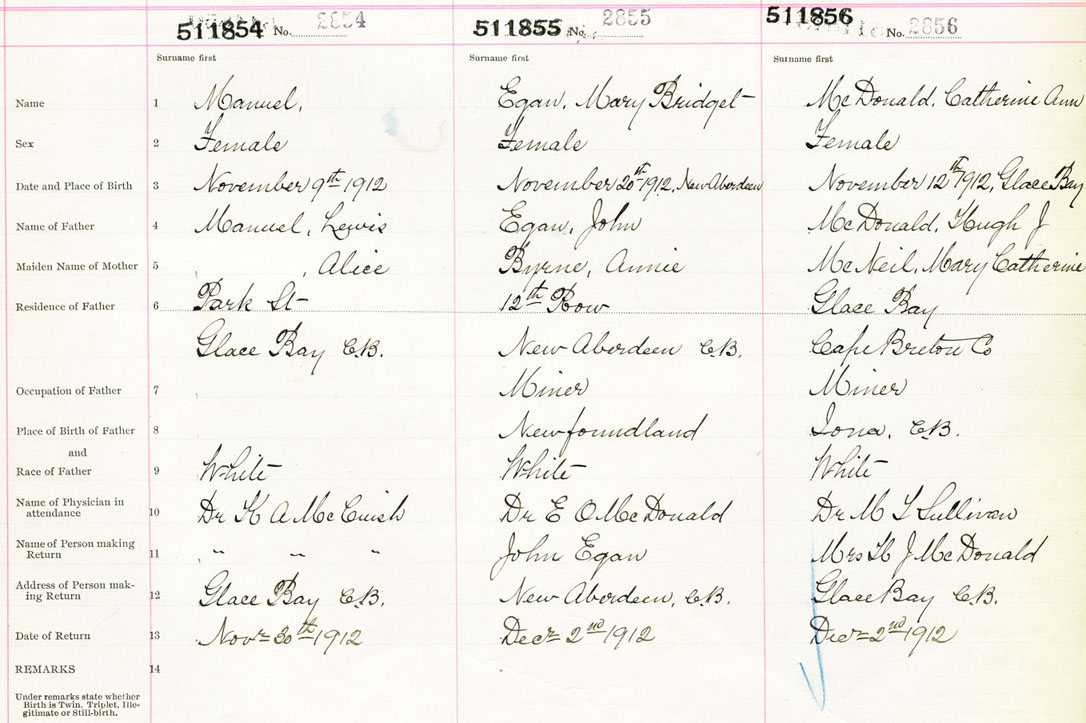 511854 No. 2854 511855 No. 2855 511856 No. 2856
Surname first Surname first Surname first
Name 1 Manuel, Egan, Mary Bridget McDonald, Catherine Ann
Sex 2 Female Female Female
Date and Place of Birth 3 November 9th 1912 November 20th 1912, New Aberdeen November 12th 1912, Glace Bay
Name of Father 4 Manuel, Lewis Egan, John McDonald, Hugh J
Maiden Name of Mother 5 , Alice Byrne, Annie McNeil, Mary Catherine
Residence of Father 6 Park St 12th Row Glace Bay
Glace Bay C.B. New Aberdeen C.B. Cape Breton Co
Occupation of Father 7 Miner Miner
Place of Birth of Father 8 Newfoundland Iona, C.B.
and
Race of Father 9 White White White
Name of Physician in
attendance 10 Dr K A McCuish Dr E O McDonald Dr M T Sullivan
Name of Person making
Return 11 " " " John Egan Mrs H J McDonald
Address of Person mak-
ing Return 12 Glace Bay C.B. New Aberdeen, C.B. Glace Bay C.B.
Date of Return 13 Novr 30th 1912 Decr 2nd 1912 Decr 2nd 1912
REMARKS 14
Under remarks state whether
Birth is Twin, Triplet, Ille-
gitimate or Still-birth.